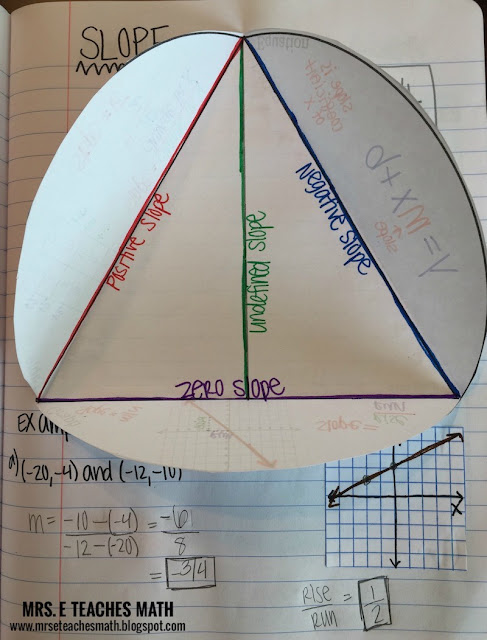 SLOPE
Positive slope
undefined slope
Negative slope
ZERO SLOPE
a) (-20,-4) and (-12,-10)
m = -10-(-4) / -12-(-20) = -6 / 8
= -3/4
X
Rise / Run = 1 / 2
MRS. E TEACHES MATH
www.mrseteachesmath.blogspot.com